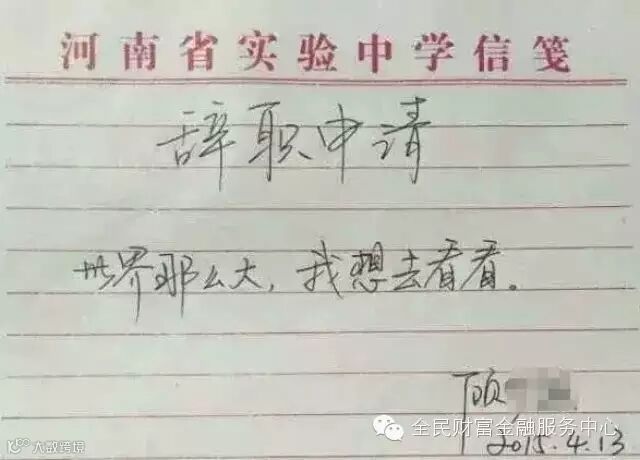 河南省实验中学信笺
辞职申请
世界那么大，我想去看看。
顾
全民财富金融服务中心
2015.4.13
大数跨境